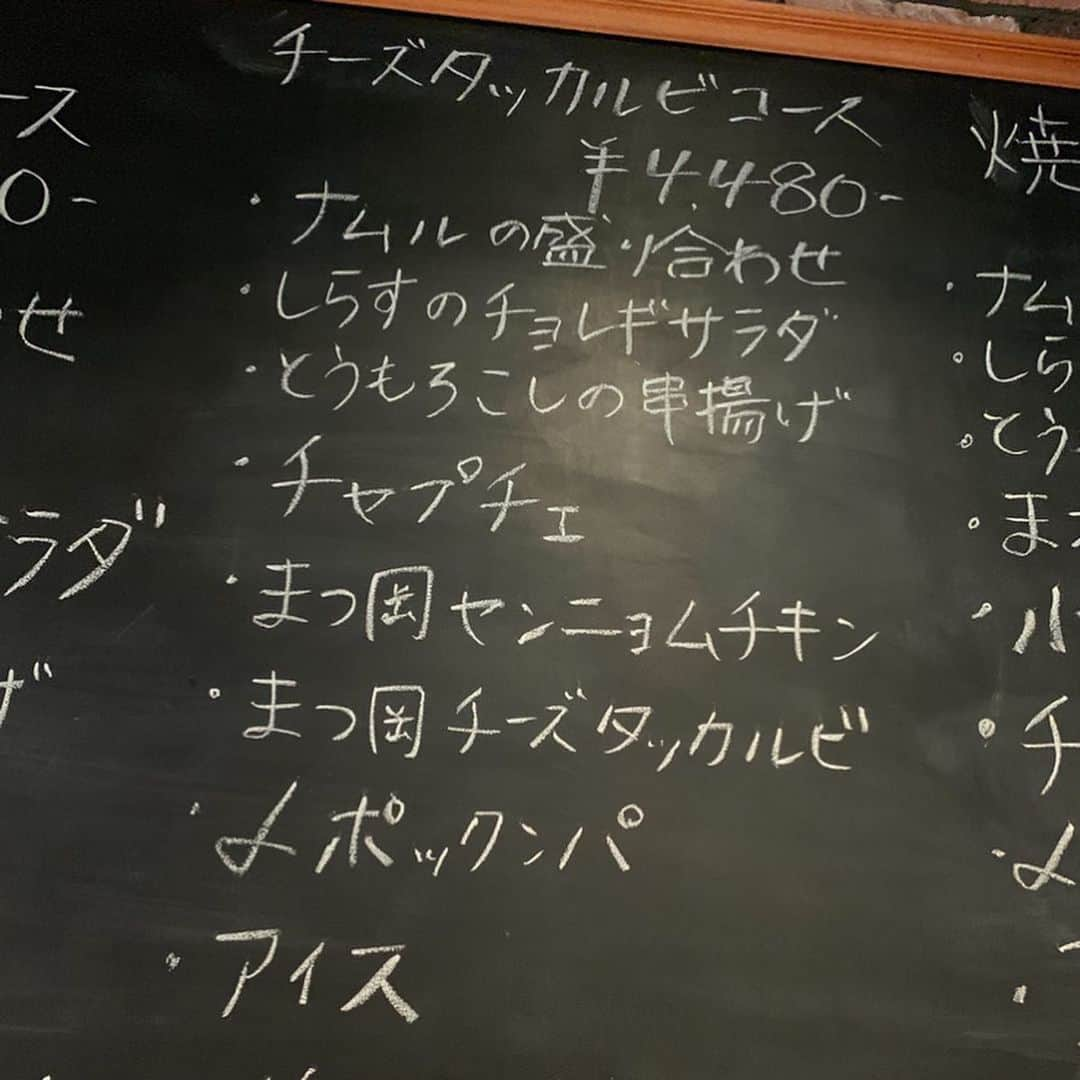 チーズタッカルビコース
¥4,480-
・ナムルの盛り合わせ
・しらすのチョレギサラダ
・とうもろこしの串揚げ
・チャプチェ
・まつ岡センニョムチキン
・まつ岡チーズタッカルビ
・〆ポックンパ
・アイス
ース
0-
せ
ラダ
げ
焼
・ナム
・しら
・とう
・ま
・チ
・〆